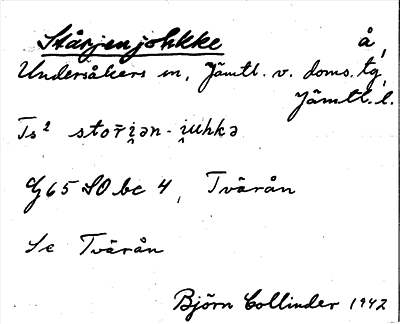 Stårjenjohkke å,
Undersåkers sn, Jämtl. v. doms. tg,
Jämtl. l.
Ts² stor̄i̯ən-i̯uhkə
G 65 SO bc 4, Tvärån
Se Tvärån
Björn Collinder 1942